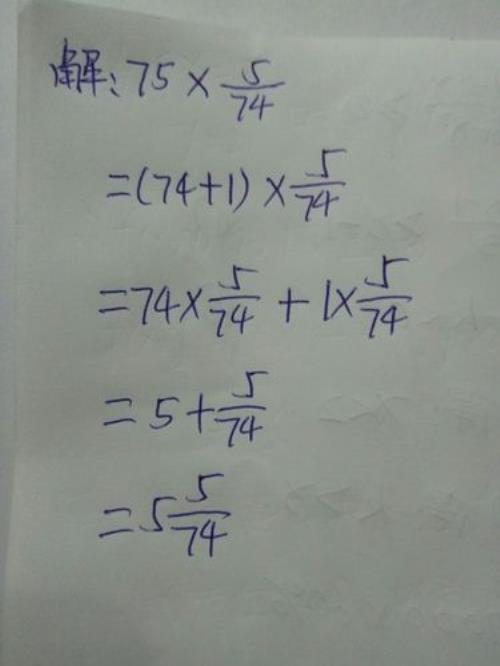 解: 75 × 5/74
=(74+1) × 5/74
=74 × 5/74 + 1 × 5/74
= 5 + 5/74
= 5 5/74